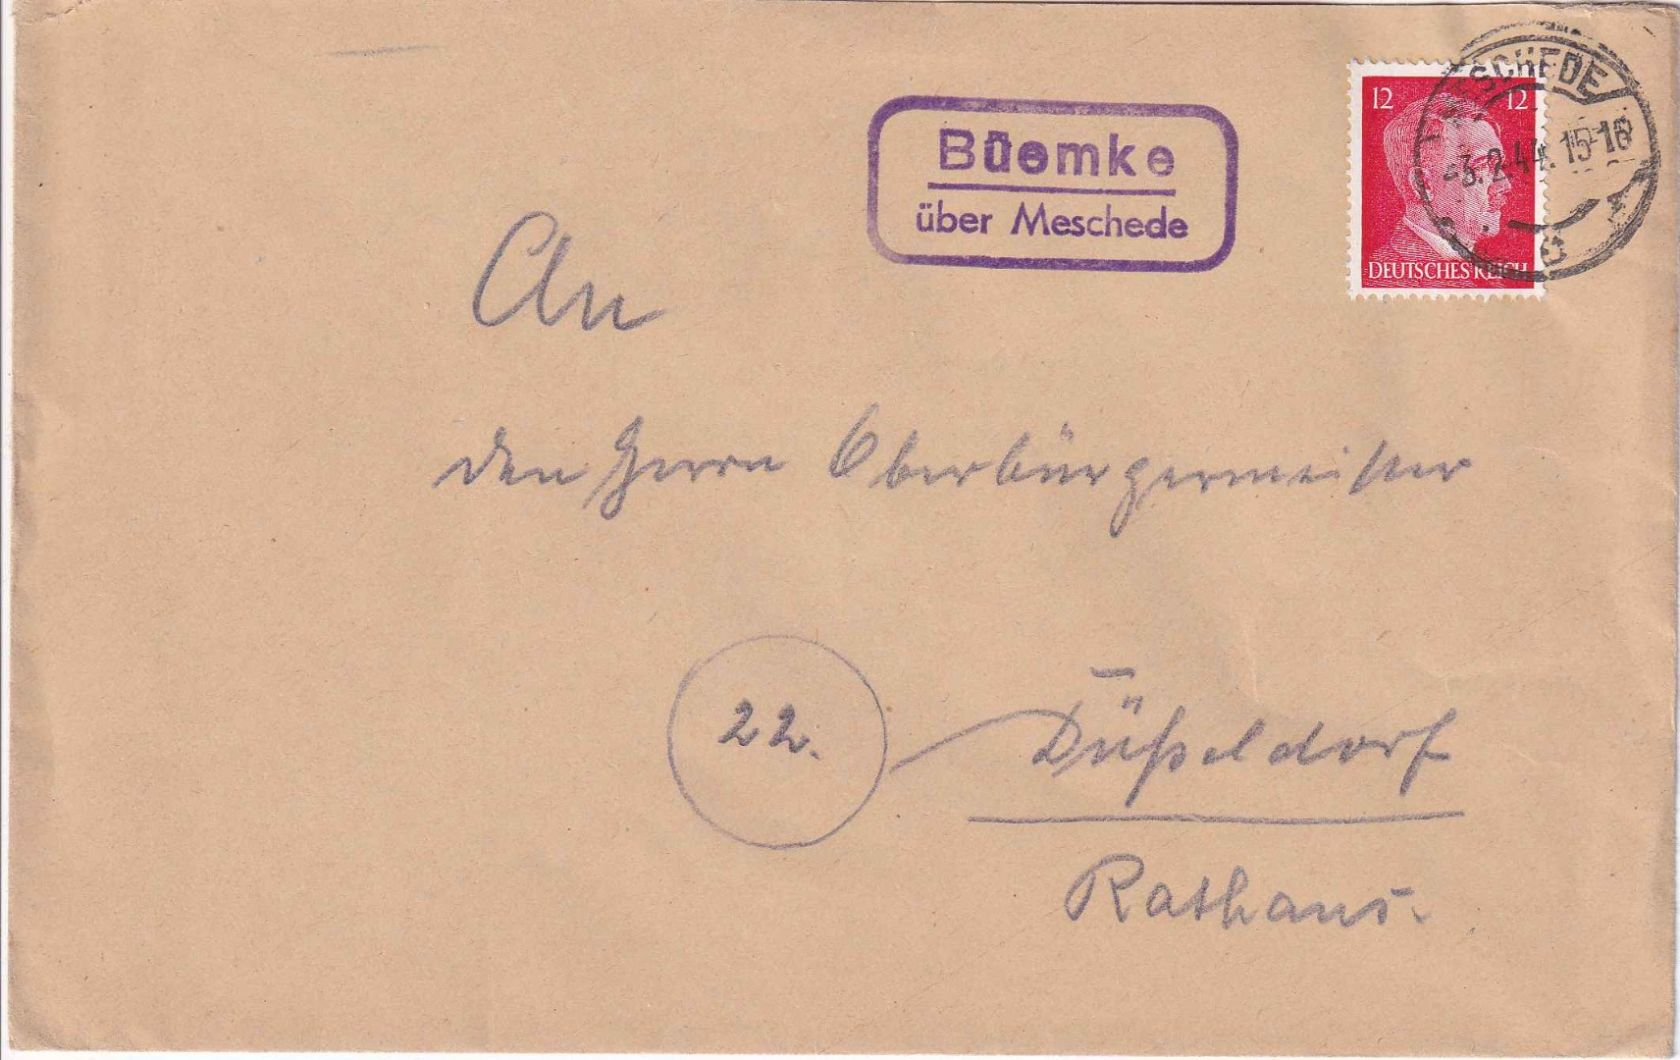 Büemke
über Meschede
12 12
DEUTSCHES REICH
MESCHEDE
-3.2.44. 15-16
An
den Herrn Oberbürgermeister
22.
Düßeldorf
Rathaus.